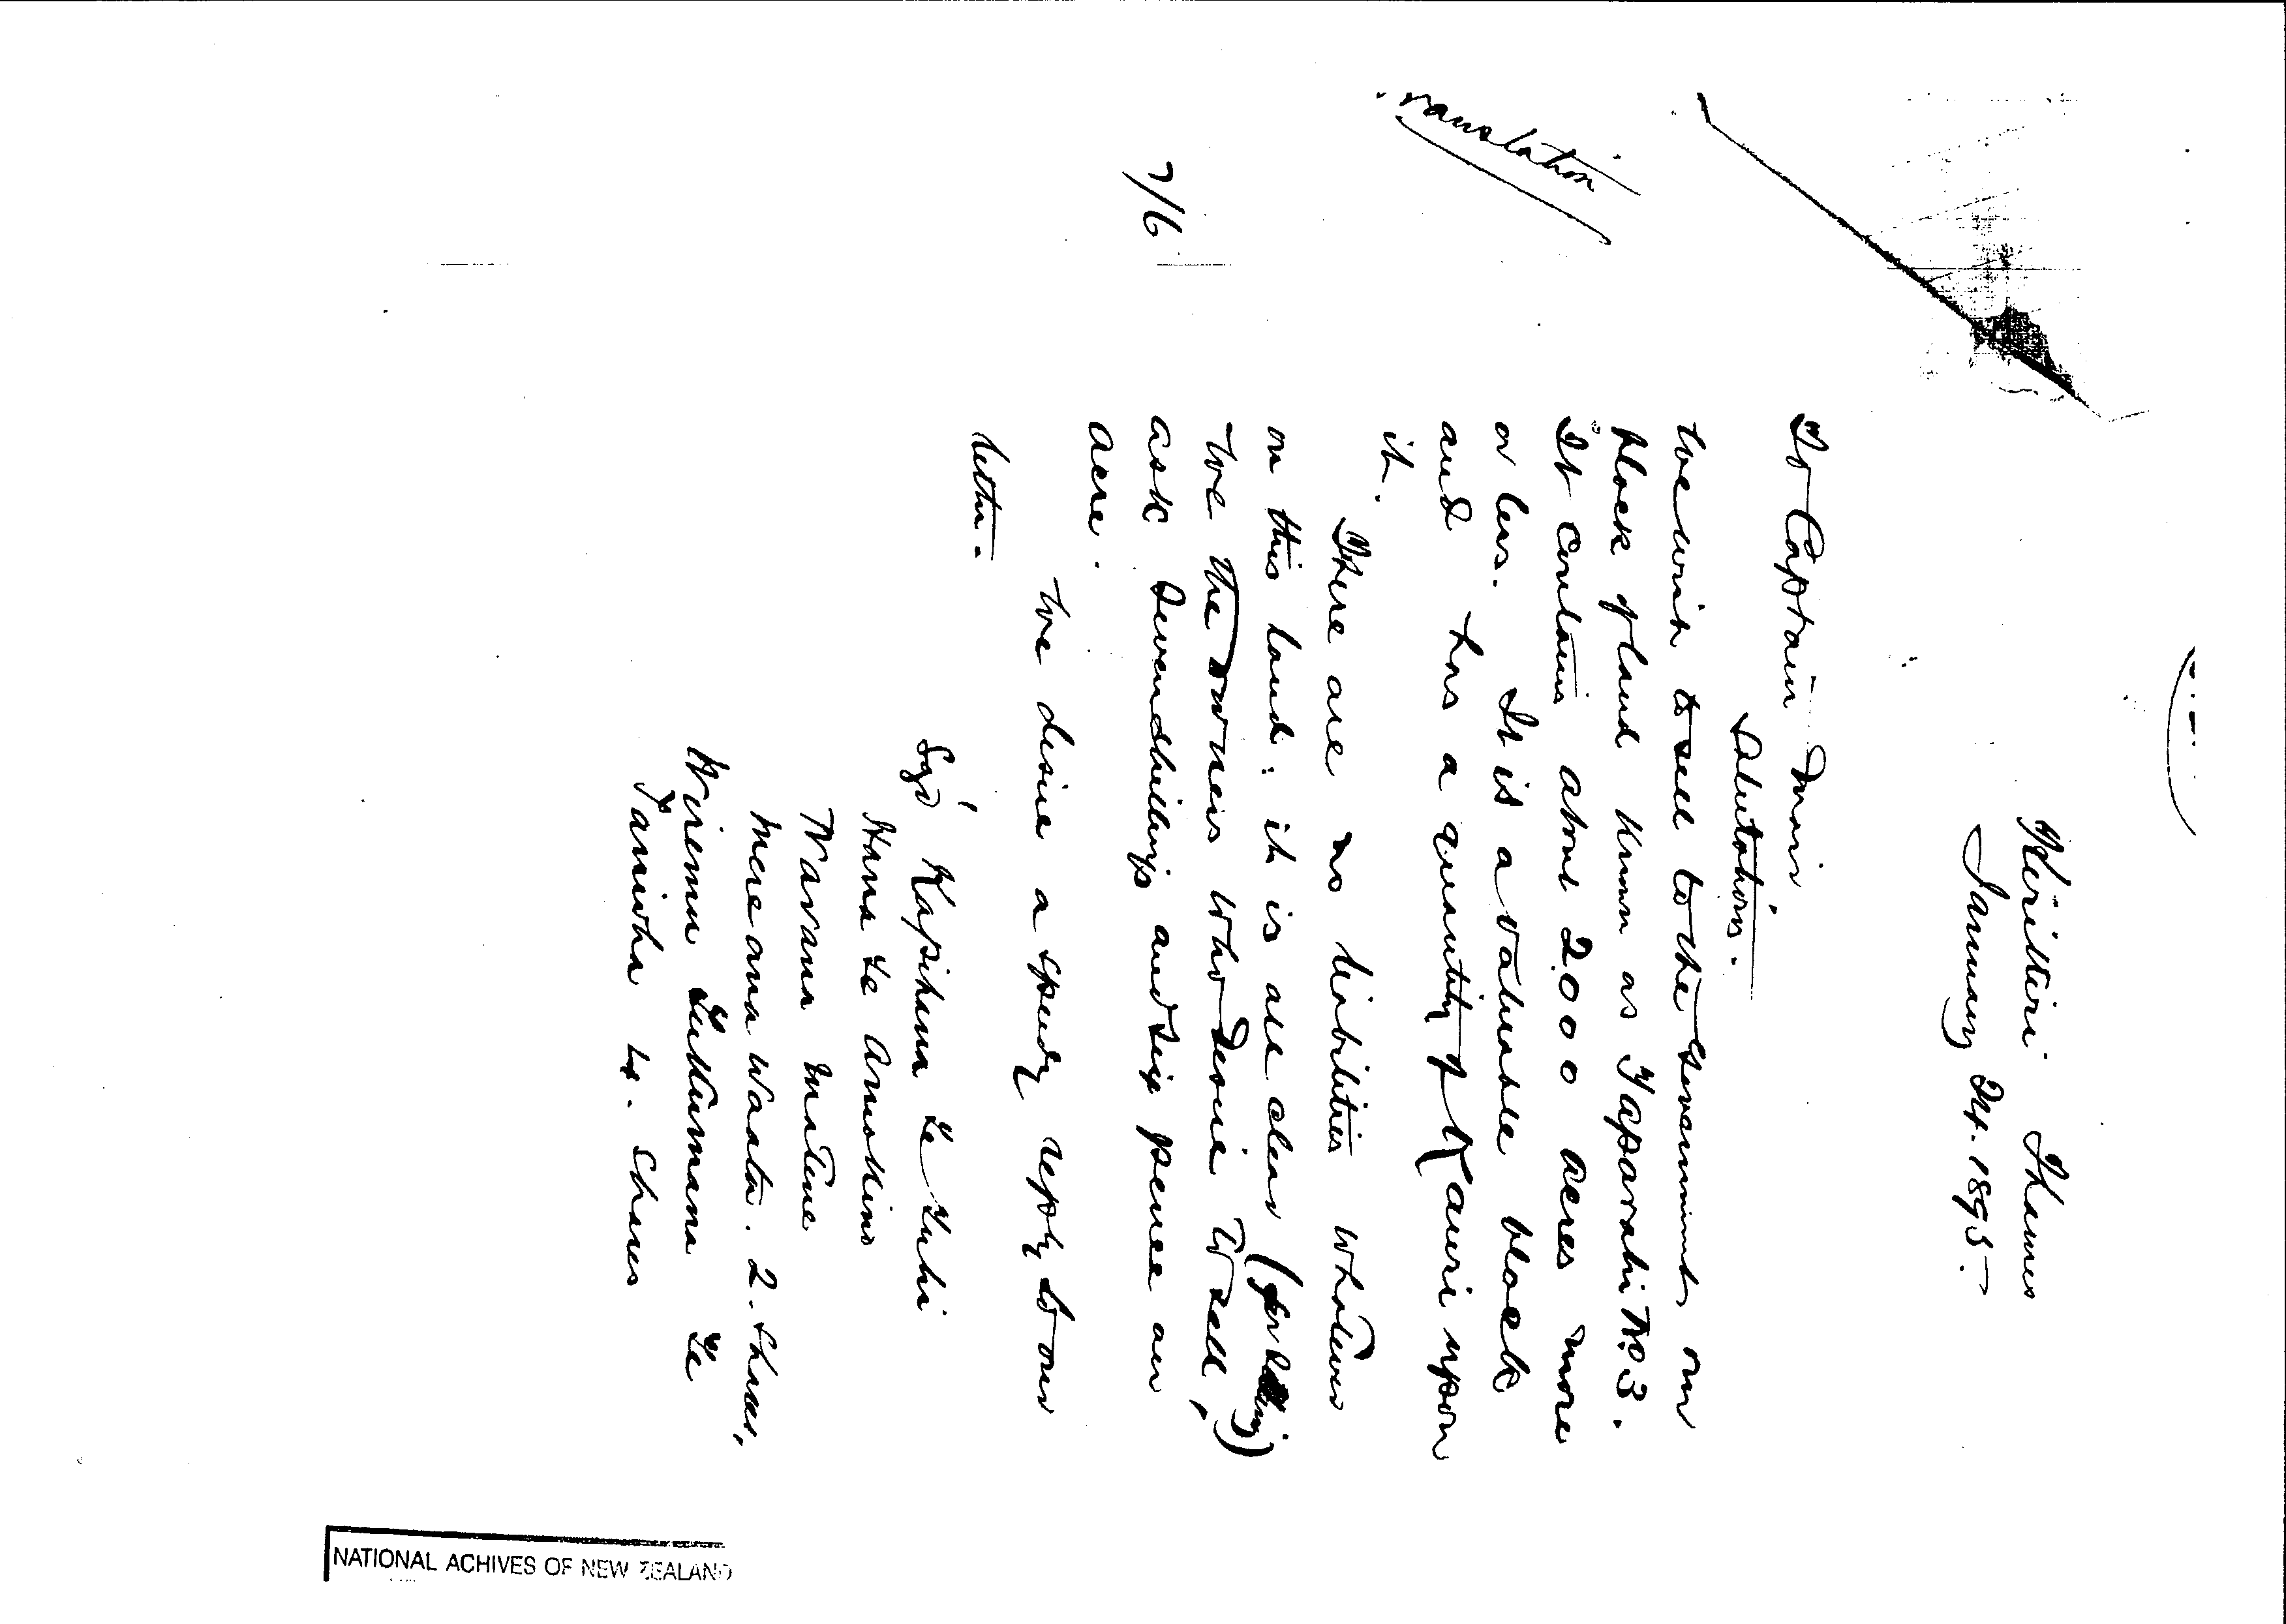 Translation
Kerikeri Thames
January 24. 1895.
To Captain Mair,
Salutations.
We wish to sell to the Government our
block of land known as Taparahi No 3.
It contains about 2000 acres more
or less. It is a valuable block
and has a quantity of Kauri upon
it.
There are no liabilities whatever
on this land: it is all clear (for selling)
We the owners who desire to sell,
ask Seven shillings and six pence an
acre.
7/6
We desire a speedy reply to our
letter.
Sgd Kapihana te Tuhi
Hana te Amokino
Warana
Mereana Waata. 2. Shares,
Wiremu Te
Taniwha 4. Shares
NATIONAL ACHIVES OF NEW ZEALAND